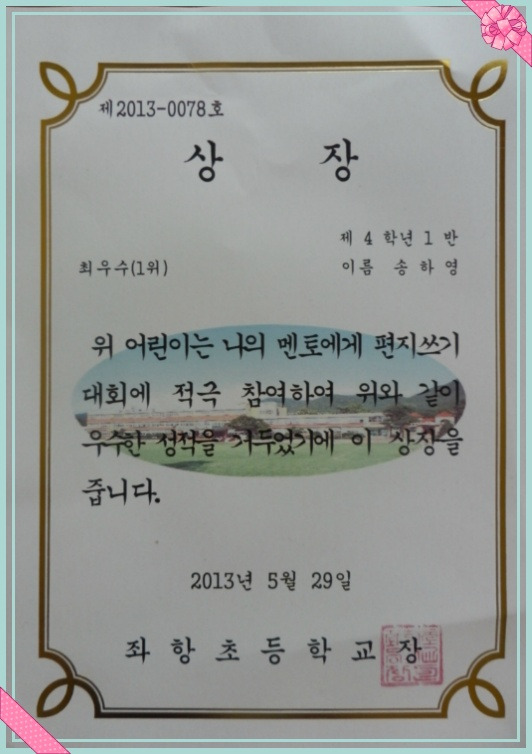 제2013-0078호
상 장
제 4 학년 1 반
최우수(1위) 이름 송 하 영
위 어린이는 나의 멘토에게 편지쓰기
대회에 적극 참여하여 위와 같이
우수한 성적을 거두었기에 이 상장을
줍니다.
2013년 5월 29일
좌 항 초 등 학 교 장